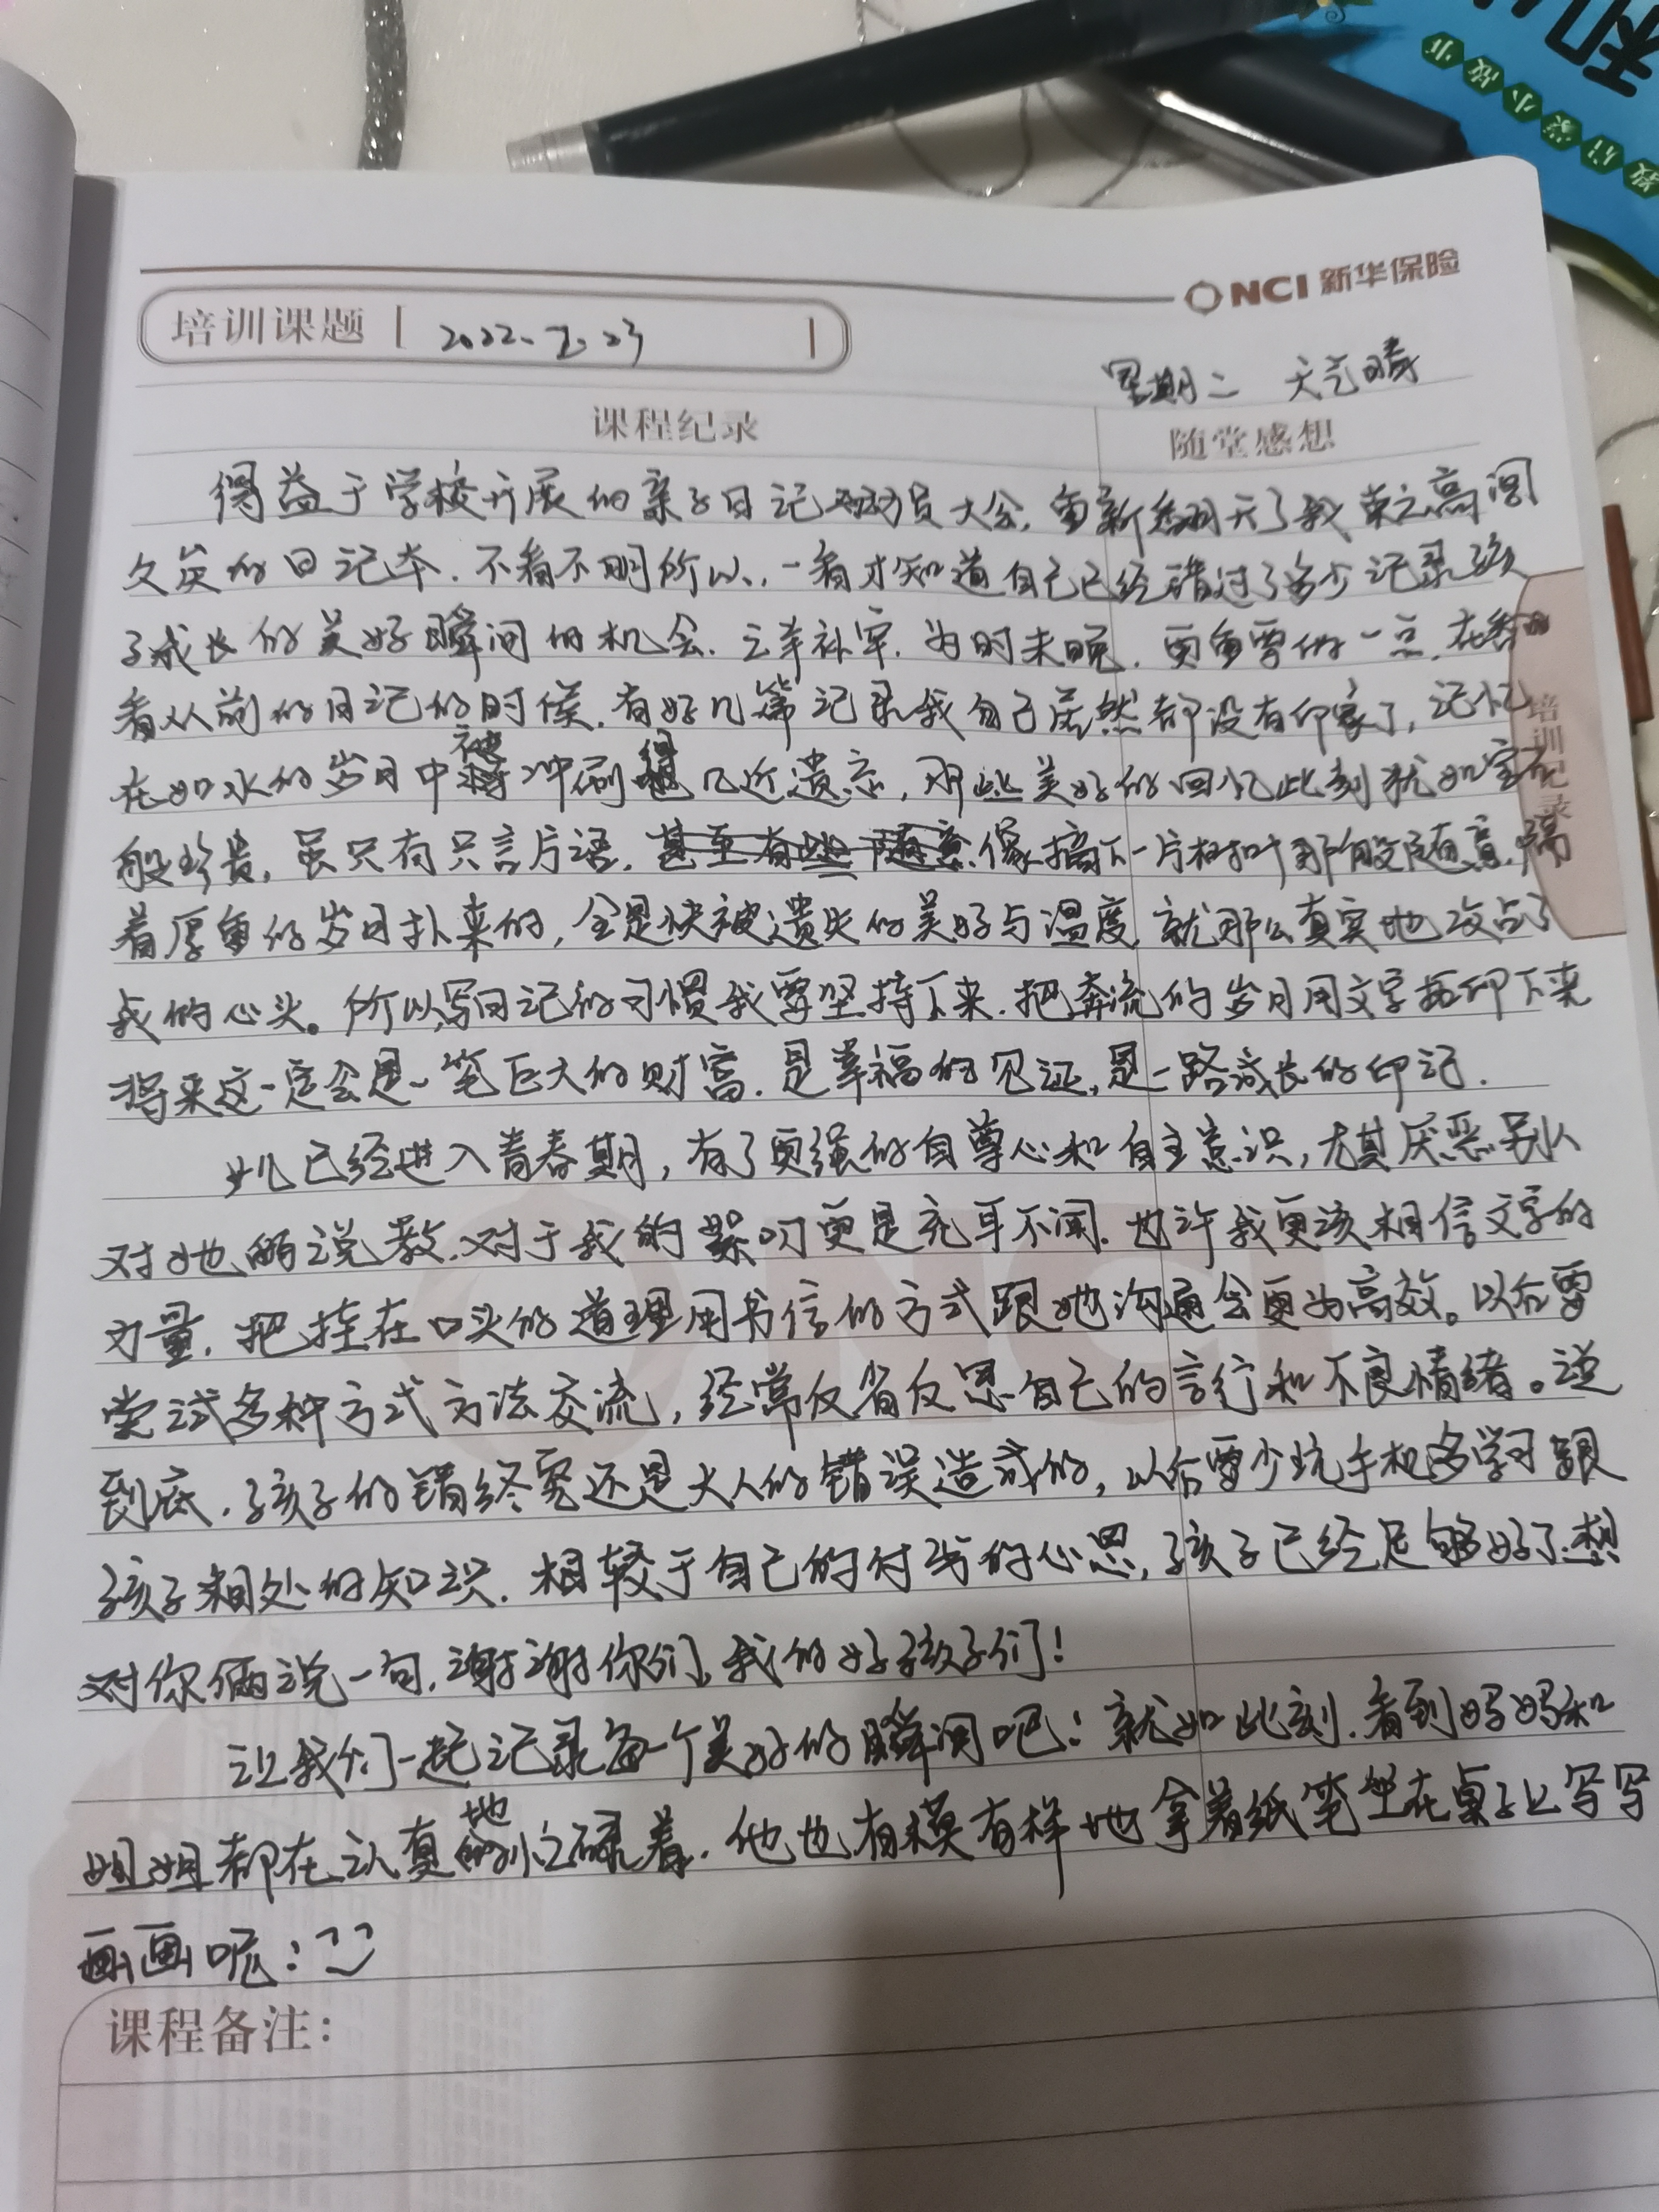 和
数信蒙小故事
NCI 新华保险
培训课题 2022.
星期二 天气晴
课程纪录 随堂感想
得益于学校开展的亲子日记动员大会,重新翻开了我束之高阁
久矣的日记本.不看不明所以,一看才知道自己已经错过了多少记录孩
子成长的美好瞬间的机会.亡羊补牢.为时未晚.更重要的一点.在翻
看从前的日记的时候.有好几篇记录我自己居然都没有印象了,记忆
在如水的岁月中被冲刷得几近遗忘,那些美好的回忆此刻犹如宝石
般珍贵,虽只有只言片语.甚至有些随意像摘下一片树叶那般随意,隔
着厚重的岁月扑来的,全是快被遗失的美好与温度,就那么真实地攻占了
我的心头。所以,写日记的习惯我要坚持下来.把奔流的岁月用文字拓印下来
将来这一定会是一笔巨大的财富.是幸福的见证,是一路成长的印记.
女儿已经进入青春期,有了更强的自尊心和自主意识,尤其厌恶别人
对她的说教.对于我的絮叨更是充耳不闻.也许我更该相信文字的
力量.把挂在口头的道理用书信的方式跟她沟通会更为高效。以后要
尝试多种方式方法交流,经常反省反思自己的言行和不良情绪。说
到底.孩子的错终究还是大人的错误造成的,以后要少玩手机多学习跟
孩子相处的知识.相较于自己的付出的心思,孩子已经足够好了.想
对你俩说一句.谢谢你们,我的好孩子们!
让我们一起记录每一个美好的瞬间吧!就如此刻.看到妈妈和
姐姐都在认真地忙碌着.他也有模有样地拿着纸笔坐在桌子上写写
画画呢:
课程备注:
培训记录